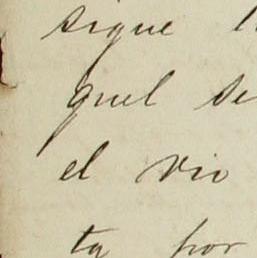 sigue
quel se
el vio
ta por